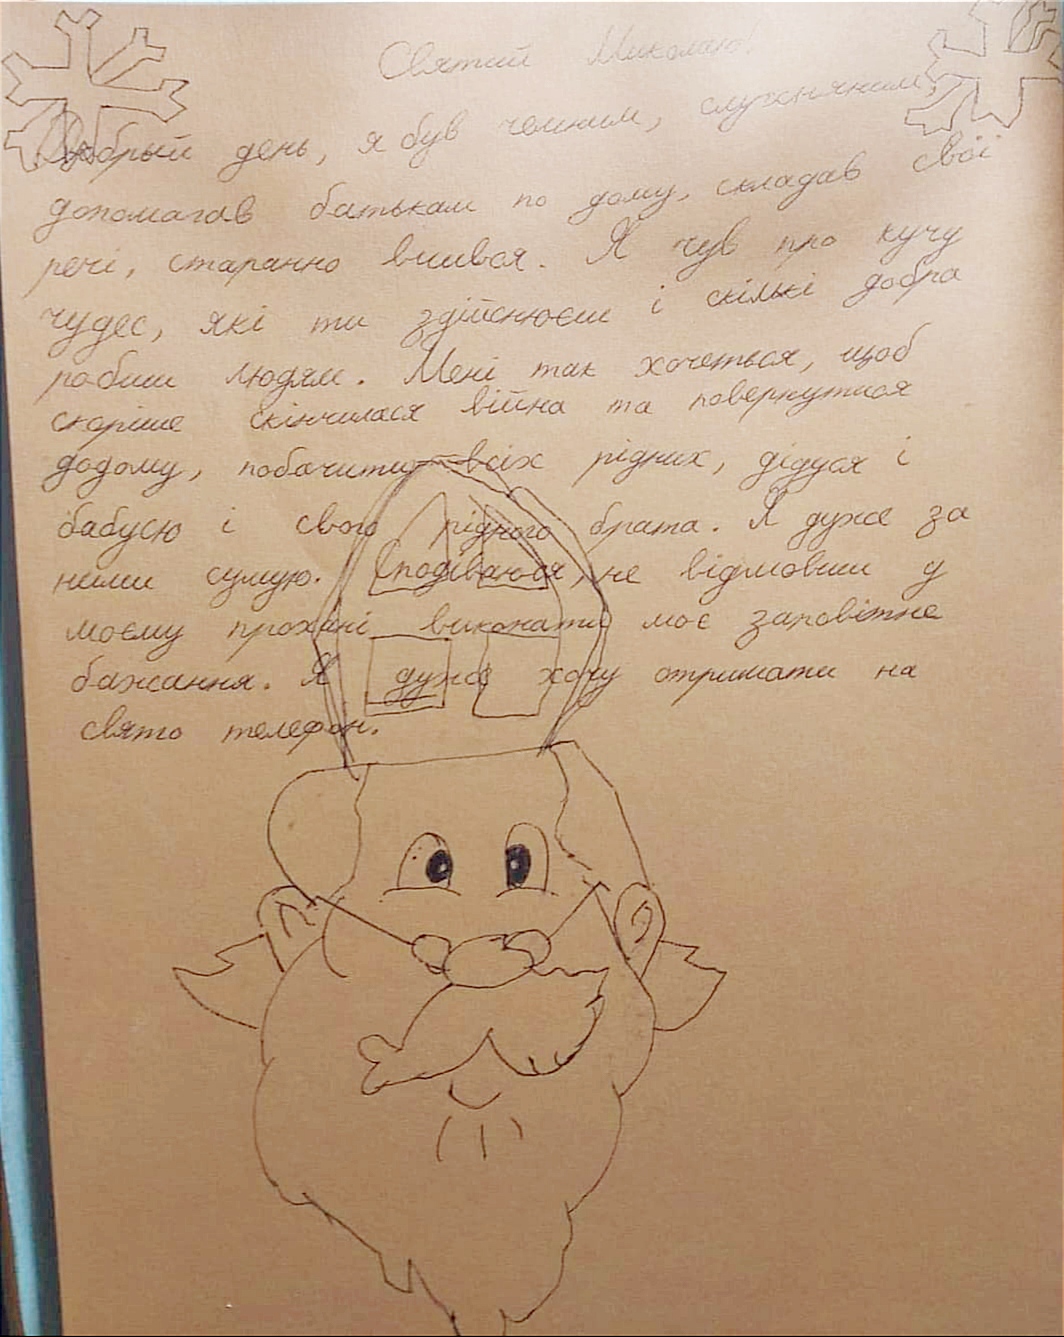 Святий Миколаю!
Добрый день, я був чемним, слухняним,
допомагав батькам по дому, складав свої
речі, старанно вчився. Я чув про кучу
чудес, які ти здійснюєш і скількі добра
робиш людям. Мені так хочеться, щоб
скоріше скінчилася війна та повернутися
додому, побачити всіх рідних, дідуся і
бабусю і свого рідного брата. Я дуже за
ними сумую. Сподіваюся, не відмовиш у
моєму прохані виконати моє заповітне
бажання. Я дуже хочу отримати на
свято телефон.